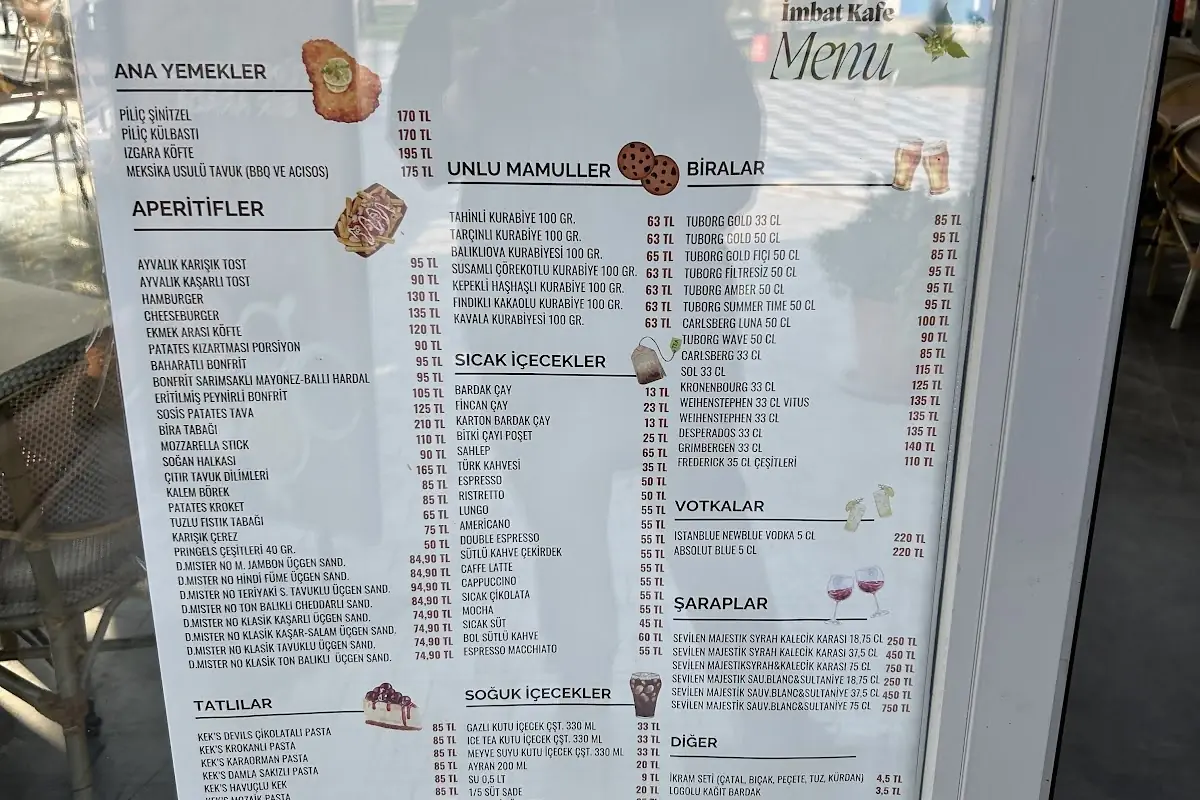 İmbat Kafe
Menu
ANA YEMEKLER
PİLİÇ ŞİNİTZEL 170 TL
PİLİÇ KÜLBASTI 170 TL
IZGARA KÖFTE 195 TL
MEKSİKA USULÜ TAVUK (BBQ VE ACISOS) 175 TL
APERİTİFLER
AYVALIK KARIŞIK TOST 95 TL
AYVALIK KAŞARLI TOST 90 TL
HAMBURGER 130 TL
CHEESEBURGER 135 TL
EKMEK ARASI KÖFTE 120 TL
PATATES KIZARTMASI PORSİYON 90 TL
BAHARATLI BONFRİT 95 TL
BONFRİT SARIMSAKLI MAYONEZ-BALLI HARDAL 95 TL
ERİTİLMİŞ PEYNİRLİ BONFRİT 105 TL
SOSİS PATATES TAVA 125 TL
BİRA TABAĞI 210 TL
MOZZARELLA STICK 110 TL
SOĞAN HALKASI 90 TL
ÇITIR TAVUK DİLİMLERİ 165 TL
KALEM BÖREK 85 TL
PATATES KROKET 85 TL
TUZLU FISTIK TABAĞI 65 TL
KARIŞIK ÇEREZ 75 TL
PRINGELS ÇEŞİTLERİ 40 GR. 50 TL
D.MISTER NO M. JAMBON ÜÇGEN SAND. 84,90 TL
D.MISTER NO HİNDİ FÜME ÜÇGEN SAND. 84,90 TL
D.MISTER NO TERİYAKİ S. TAVUKLU ÜÇGEN SAND. 94,90 TL
D.MISTER NO TON BALIKLI CHEDDARLI SAND. 84,90 TL
D.MISTER NO KLASİK KAŞARLI ÜÇGEN SAND. 74,90 TL
D.MISTER NO KLASİK KAŞAR-SALAM ÜÇGEN SAND. 74,90 TL
D.MISTER NO KLASİK TAVUKLU ÜÇGEN SAND. 74,90 TL
D.MISTER NO KLASİK TON BALIKLI ÜÇGEN SAND. 74,90 TL
TATLILAR
KEK'S DEVILS ÇİKOLATALI PASTA 85 TL
KEK'S KROKANLI PASTA 85 TL
KEK'S KARAORMAN PASTA 85 TL
KEK'S DAMLA SAKIZLI PASTA 85 TL
KEK'S HAVUÇLU KEK 85 TL
KEK'S MOZAİK PASTA 85 TL
UNLU MAMULLER
TAHİNLİ KURABİYE 100 GR. 63 TL
TARÇINLI KURABİYE 100 GR. 63 TL
BALIKLIOVA KURABİYESİ 100 GR. 65 TL
SUSAMLI ÇÖREKOTLU KURABİYE 100 GR. 63 TL
KEPEKLİ HAŞHAŞLI KURABİYE 100 GR. 63 TL
FINDIKLI KAKAOLU KURABİYE 100 GR. 63 TL
KAVALA KURABİYESİ 100 GR. 63 TL
SICAK İÇECEKLER
BARDAK ÇAY 13 TL
FİNCAN ÇAY 23 TL
KARTON BARDAK ÇAY 13 TL
BİTKİ ÇAYI POŞET 25 TL
SAHLEP 65 TL
TÜRK KAHVESİ 35 TL
ESPRESSO 50 TL
RISTRETTO 50 TL
LUNGO 55 TL
AMERICANO 55 TL
DOUBLE ESPRESSO 55 TL
SÜTLÜ KAHVE ÇEKİRDEK 55 TL
CAFFE LATTE 55 TL
CAPPUCCINO 55 TL
SICAK ÇİKOLATA 55 TL
MOCHA 55 TL
SICAK SÜT 45 TL
BOL SÜTLÜ KAHVE 60 TL
ESPRESSO MACCHIATO 55 TL
SOĞUK İÇECEKLER
GAZLI KUTU İÇECEK ÇŞT. 330 ML 33 TL
ICE TEA KUTU İÇECEK ÇŞT. 330 ML 33 TL
MEYVE SUYU KUTU İÇECEK ÇŞT. 330 ML 33 TL
AYRAN 200 ML 20 TL
SU 0,5 LT 9 TL
1/5 SÜT SADE 20 TL
BİRALAR
TUBORG GOLD 33 CL 85 TL
TUBORG GOLD 50 CL 95 TL
TUBORG GOLD FIÇI 50 CL 85 TL
TUBORG FİLTRESİZ 50 CL 95 TL
TUBORG AMBER 50 CL 95 TL
TUBORG SUMMER TIME 50 CL 95 TL
CARLSBERG LUNA 50 CL 100 TL
TUBORG WAVE 50 CL 90 TL
CARLSBERG 33 CL 85 TL
SOL 33 CL 115 TL
KRONENBOURG 33 CL 125 TL
WEIHENSTEPHEN 33 CL VITUS 135 TL
WEIHENSTEPHEN 33 CL 135 TL
DESPERADOS 33 CL 135 TL
GRIMBERGEN 33 CL 140 TL
FREDERICK 35 CL ÇEŞİTLERİ 110 TL
VOTKALAR
ISTANBLUE NEWBLUE VODKA 5 CL 220 TL
ABSOLUT BLUE 5 CL 220 TL
ŞARAPLAR
SEVİLEN MAJESTİK SYRAH KALECİK KARASI 18,75 CL 250 TL
SEVİLEN MAJESTİK SYRAH KALECİK KARASI 37,5 CL 450 TL
SEVİLEN MAJESTİKSYRAH&KALECİK KARASI 75 CL 750 TL
SEVİLEN MAJESTİK SAU.BLANC&SULTANİYE 18,75 CL 250 TL
SEVİLEN MAJESTİK SAUV.BLANC&SULTANİYE 37,5 CL 450 TL
SEVİLEN MAJESTİK SAUV.BLANC&SULTANİYE 75 CL 750 TL
DİĞER
İKRAM SETİ (ÇATAL, BIÇAK, PEÇETE, TUZ, KÜRDAN) 4,5 TL
LOGOLU KAĞIT BARDAK 3,5 TL